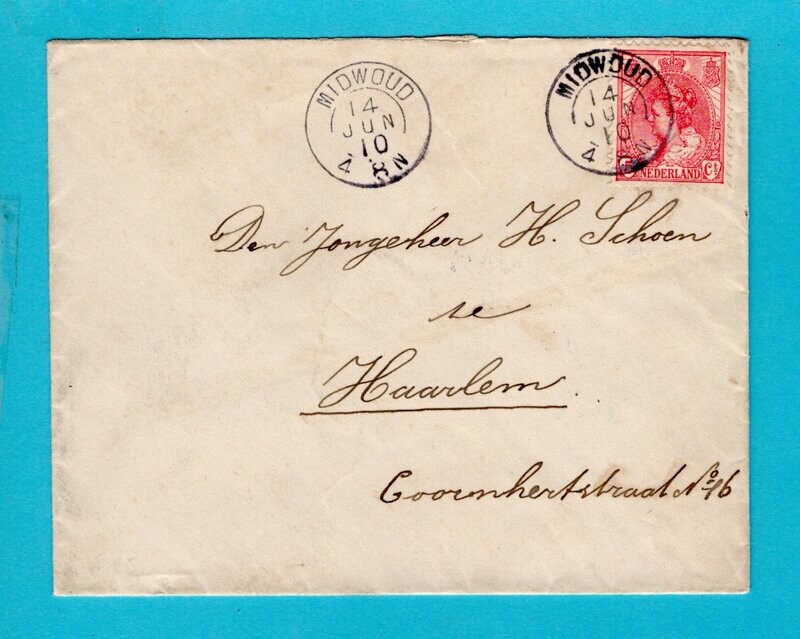 MIDWOUD
14
JUN
10
4 8N
MIDWOUD
14
JUN
10
4 8N
5 Ct
NEDERLAND
Den Jongeheer H. Schoen
te
Haarlem.
Coornhertstraat No 16